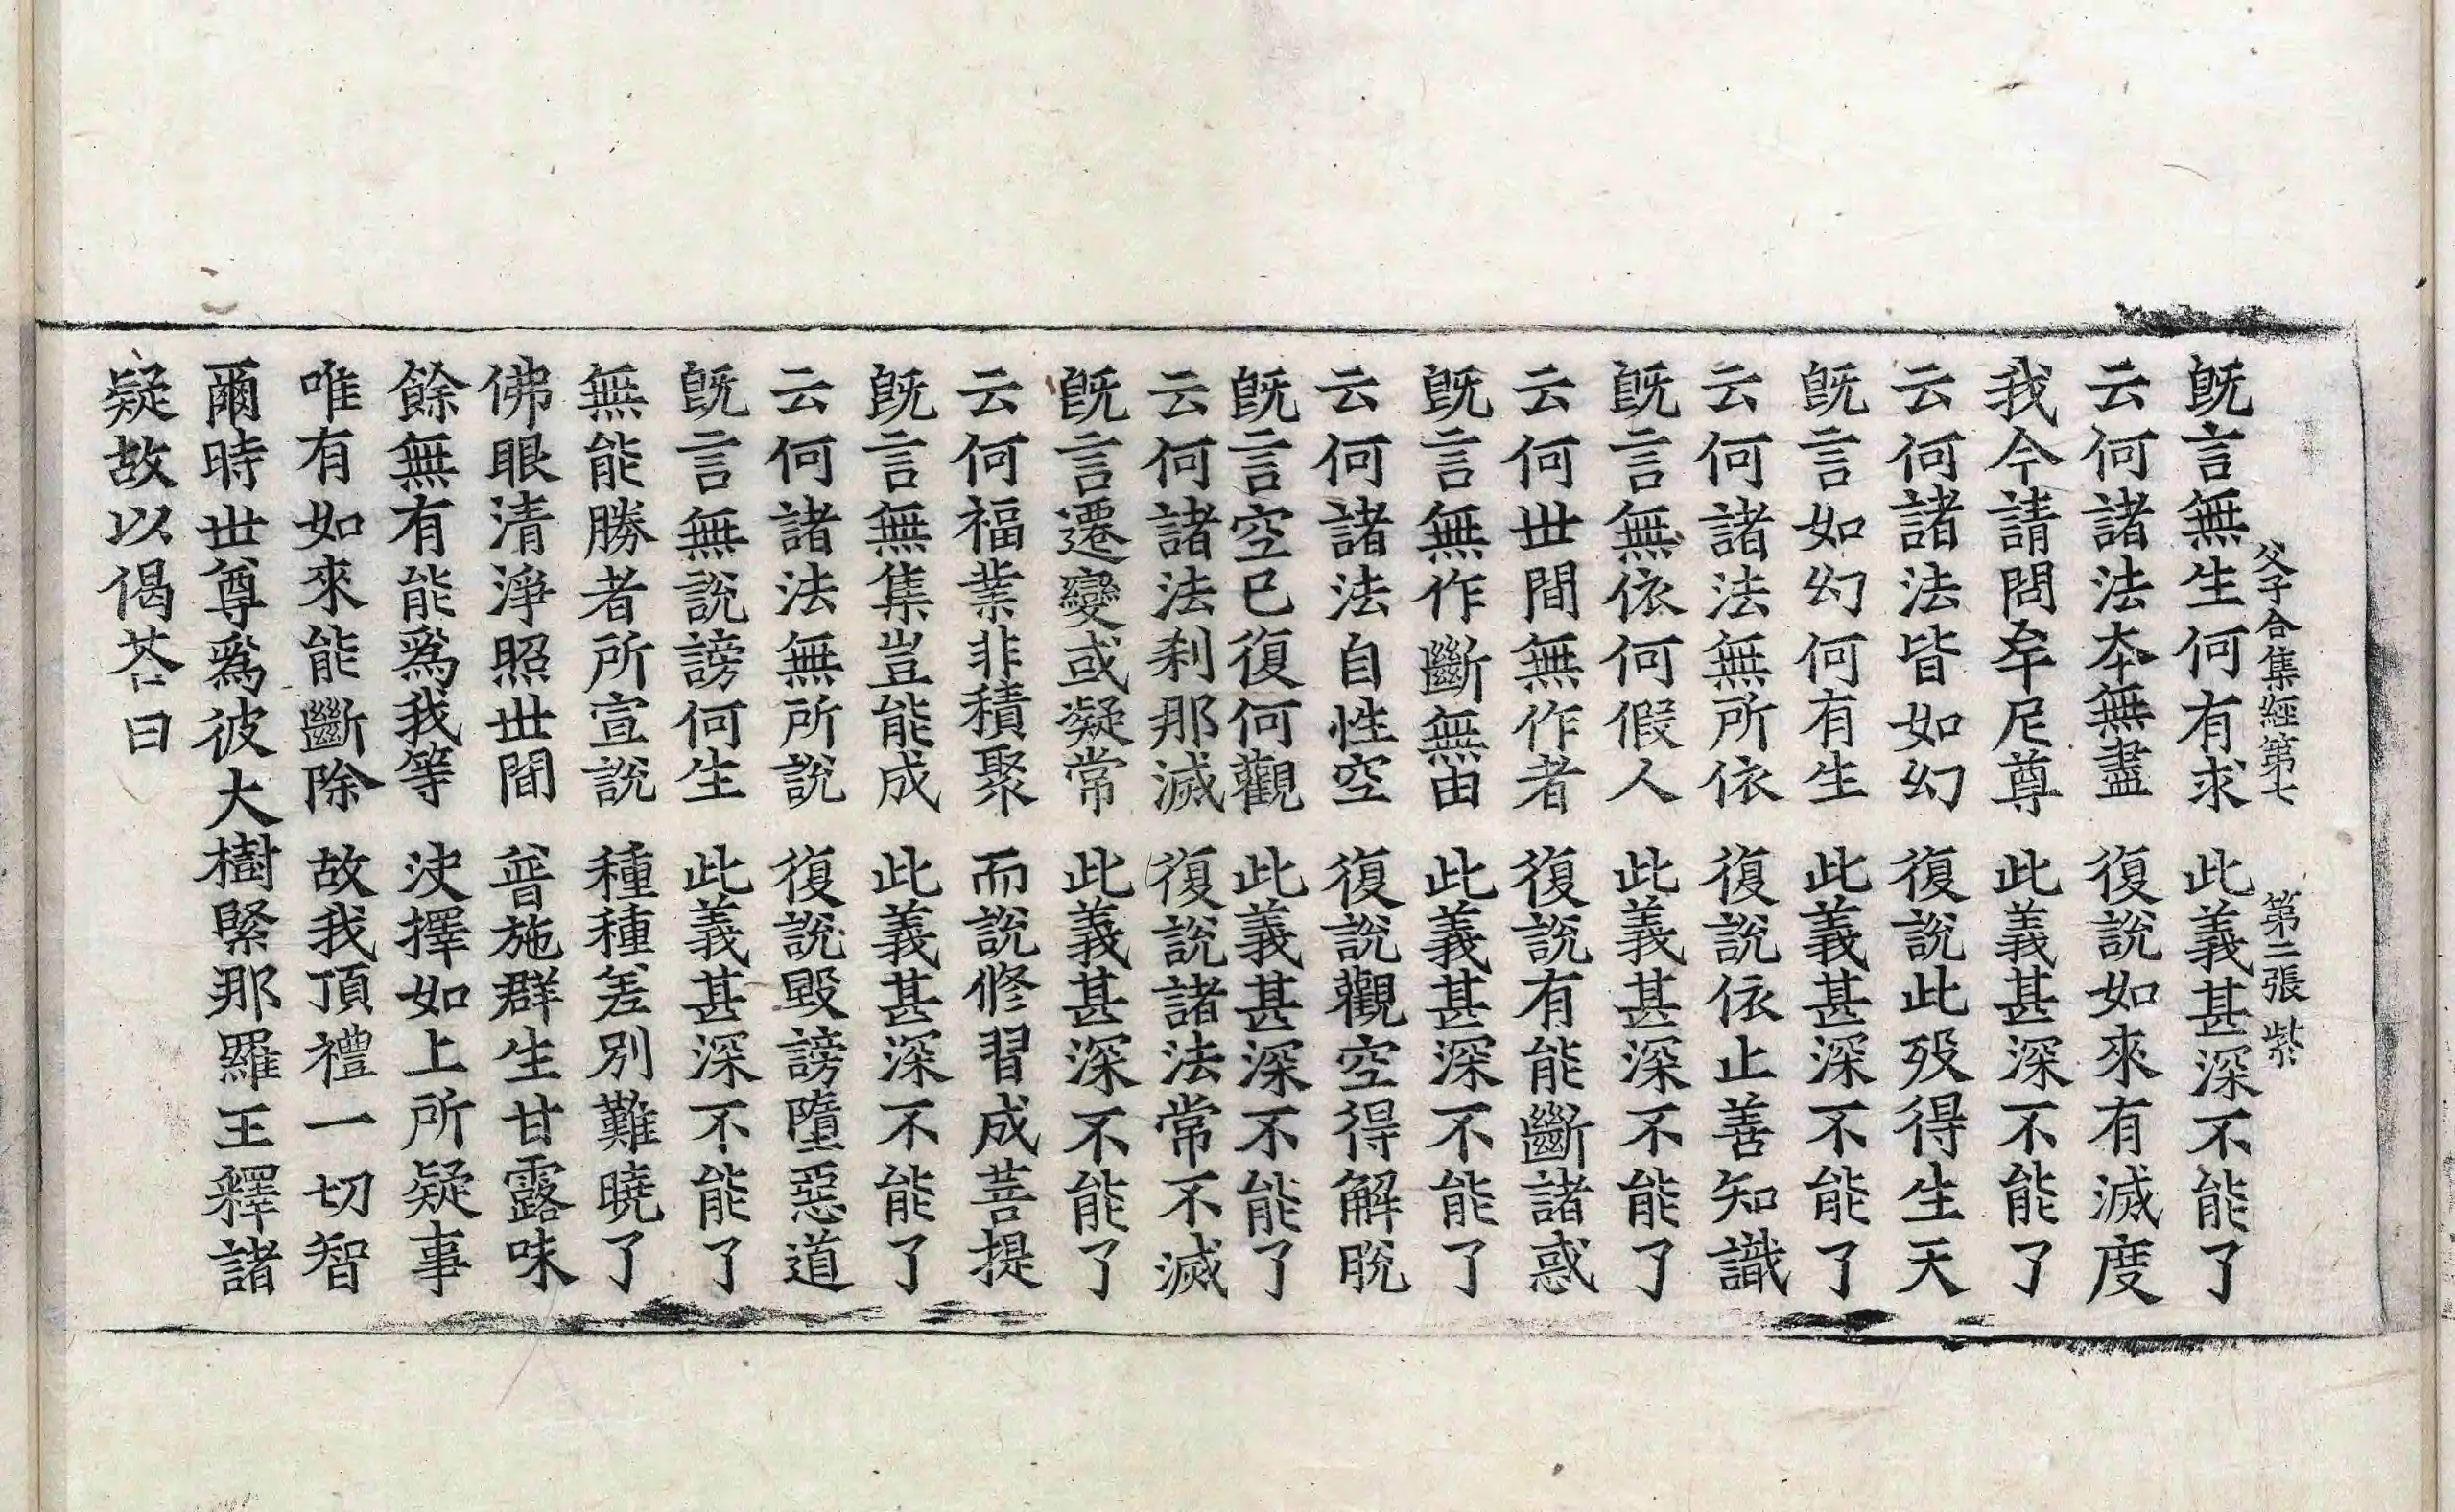 父子合集經第七 第二張 紫
旣言無生何有求 此義甚深不能了
云何諸法本無盡 復說如來有滅度
我今請問牟尼尊 此義甚深不能了
云何諸法皆如幻 復說此歿得生天
旣言如幻何有生 此義甚深不能了
云何諸法無所依 復說依止善知識
旣言無依何假人 此義甚深不能了
云何世間無作者 復說有能斷諸惑
旣言無作斷無由 此義甚深不能了
云何諸法自性空 復說觀空得解脫
旣言空已復何觀 此義甚深不能了
云何諸法刹那滅 復說諸法常不滅
旣言遷變或凝常 此義甚深不能了
云何福業非積聚 而說修習成菩提
旣言無集豈能成 此義甚深不能了
云何諸法無所說 復說毀謗墮惡道
旣言無說謗何生 此義甚深不能了
無能勝者所宣說 種種差別難曉了
佛眼清淨照世間 普施群生甘露味
餘無有能爲我等 決擇如上所疑事
唯有如來能斷除 故我頂禮一切智
爾時世尊爲彼大樹緊那羅王釋諸
疑故以偈荅曰